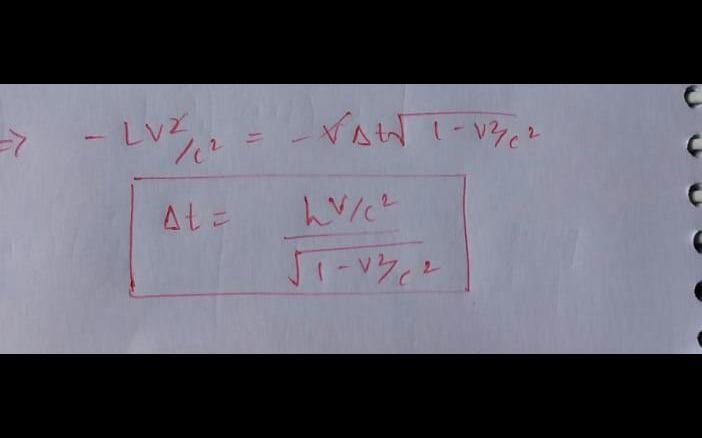 => - LV²/c² = - V Δt √1 - V²/c²
Δt = LV/c² / √1 - V²/c²